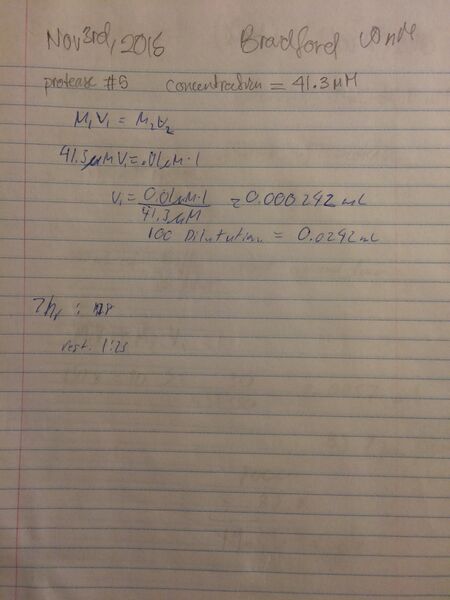 Nov 3rd, 2015 Bradford
protease #5 concentration = 41.3 µM
M₁V₁ = M₂V₂
41.3 µM V₁ = .01 µM · 1
V₁ = 0.01 µM · 1 = 0.000242 mL
41.3 µM
100 Dilution = 0.0242 mL
rest. 1:25